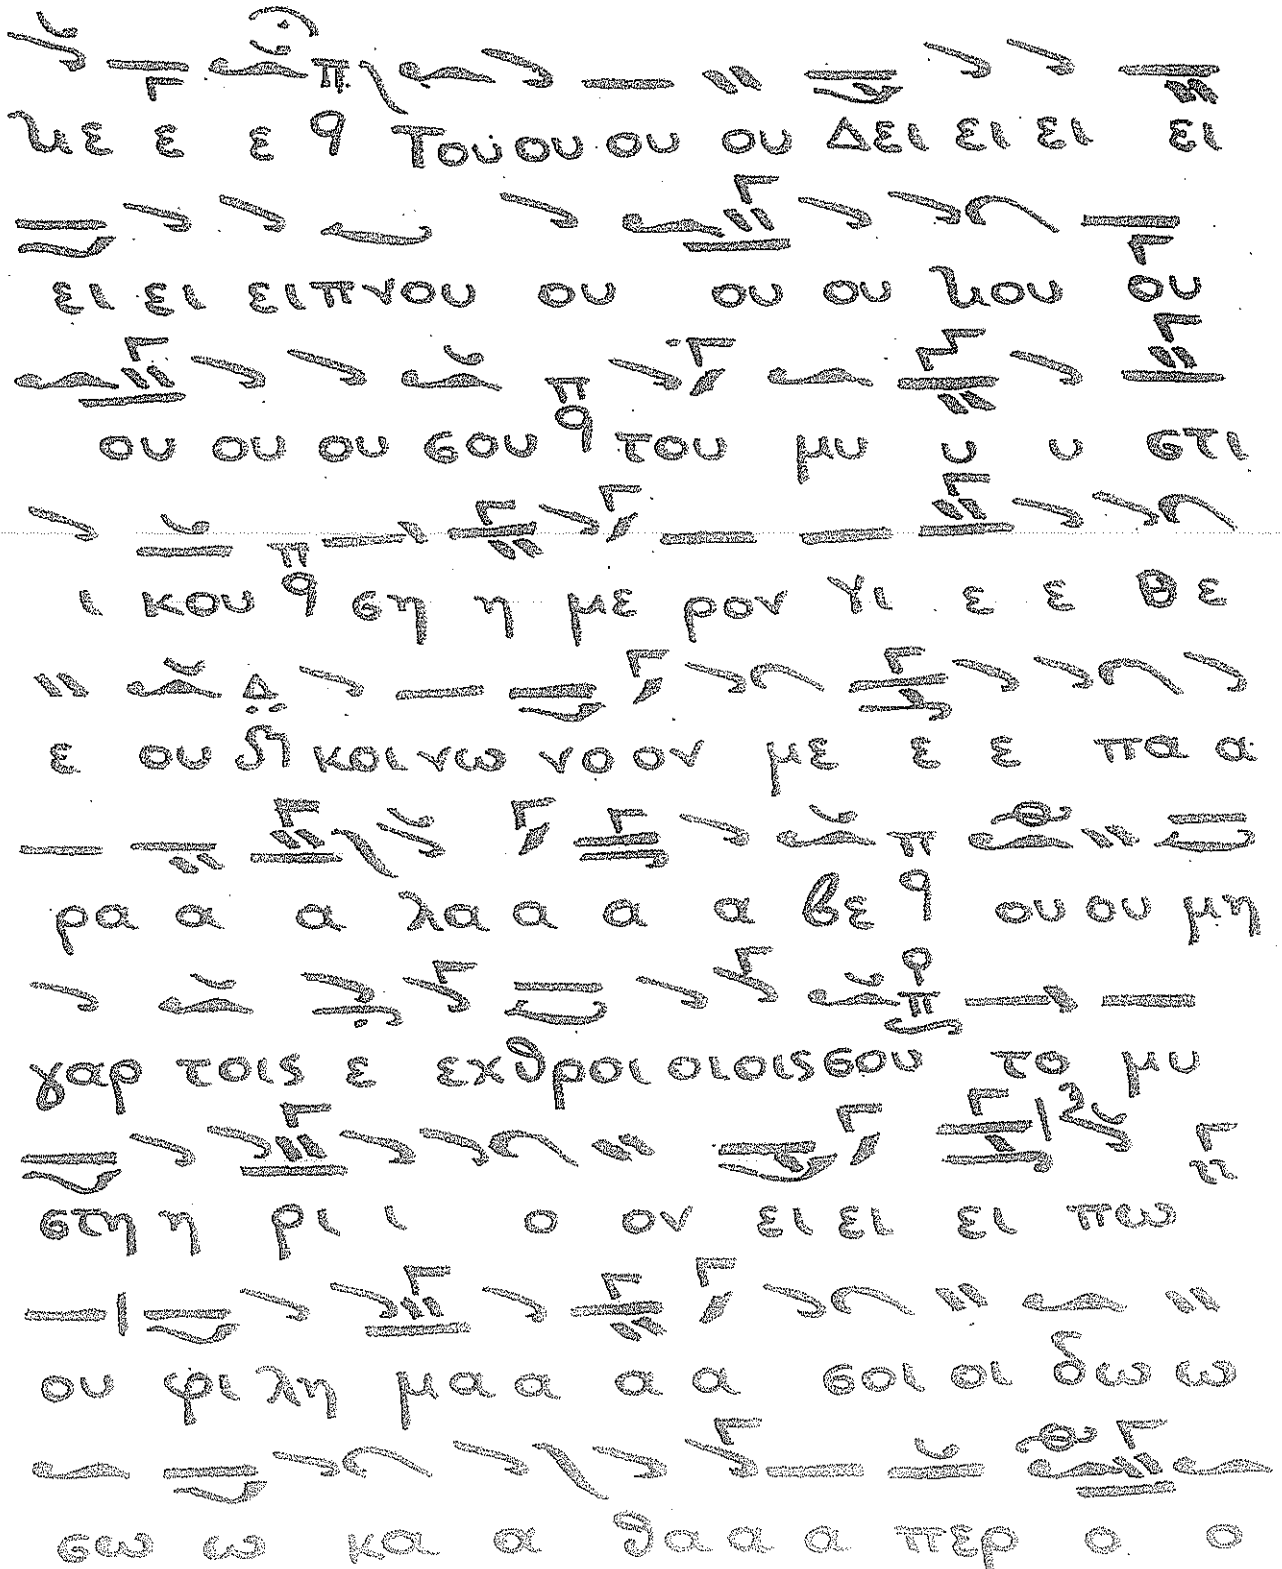 κε ε ε Τού ου ου ου Δει ει ει ει
ει ει ειπνου ου ου ου κου ου
ου ου ου σου του μυ υ υ στι
ι κου ση η με ρον Υι ε ε Θε
ε ου κοι νω νο ον με ε ε πα α
ρα α α λα α α α βε ου ου μη
γαρ τοις ε εχθροι οι οις σου το μυ
στη η ρι ι ο ον ει ει ει πω
ου φι λη μα α α α σοι οι δω ω
σω ω κα α θα α α περ ο ο